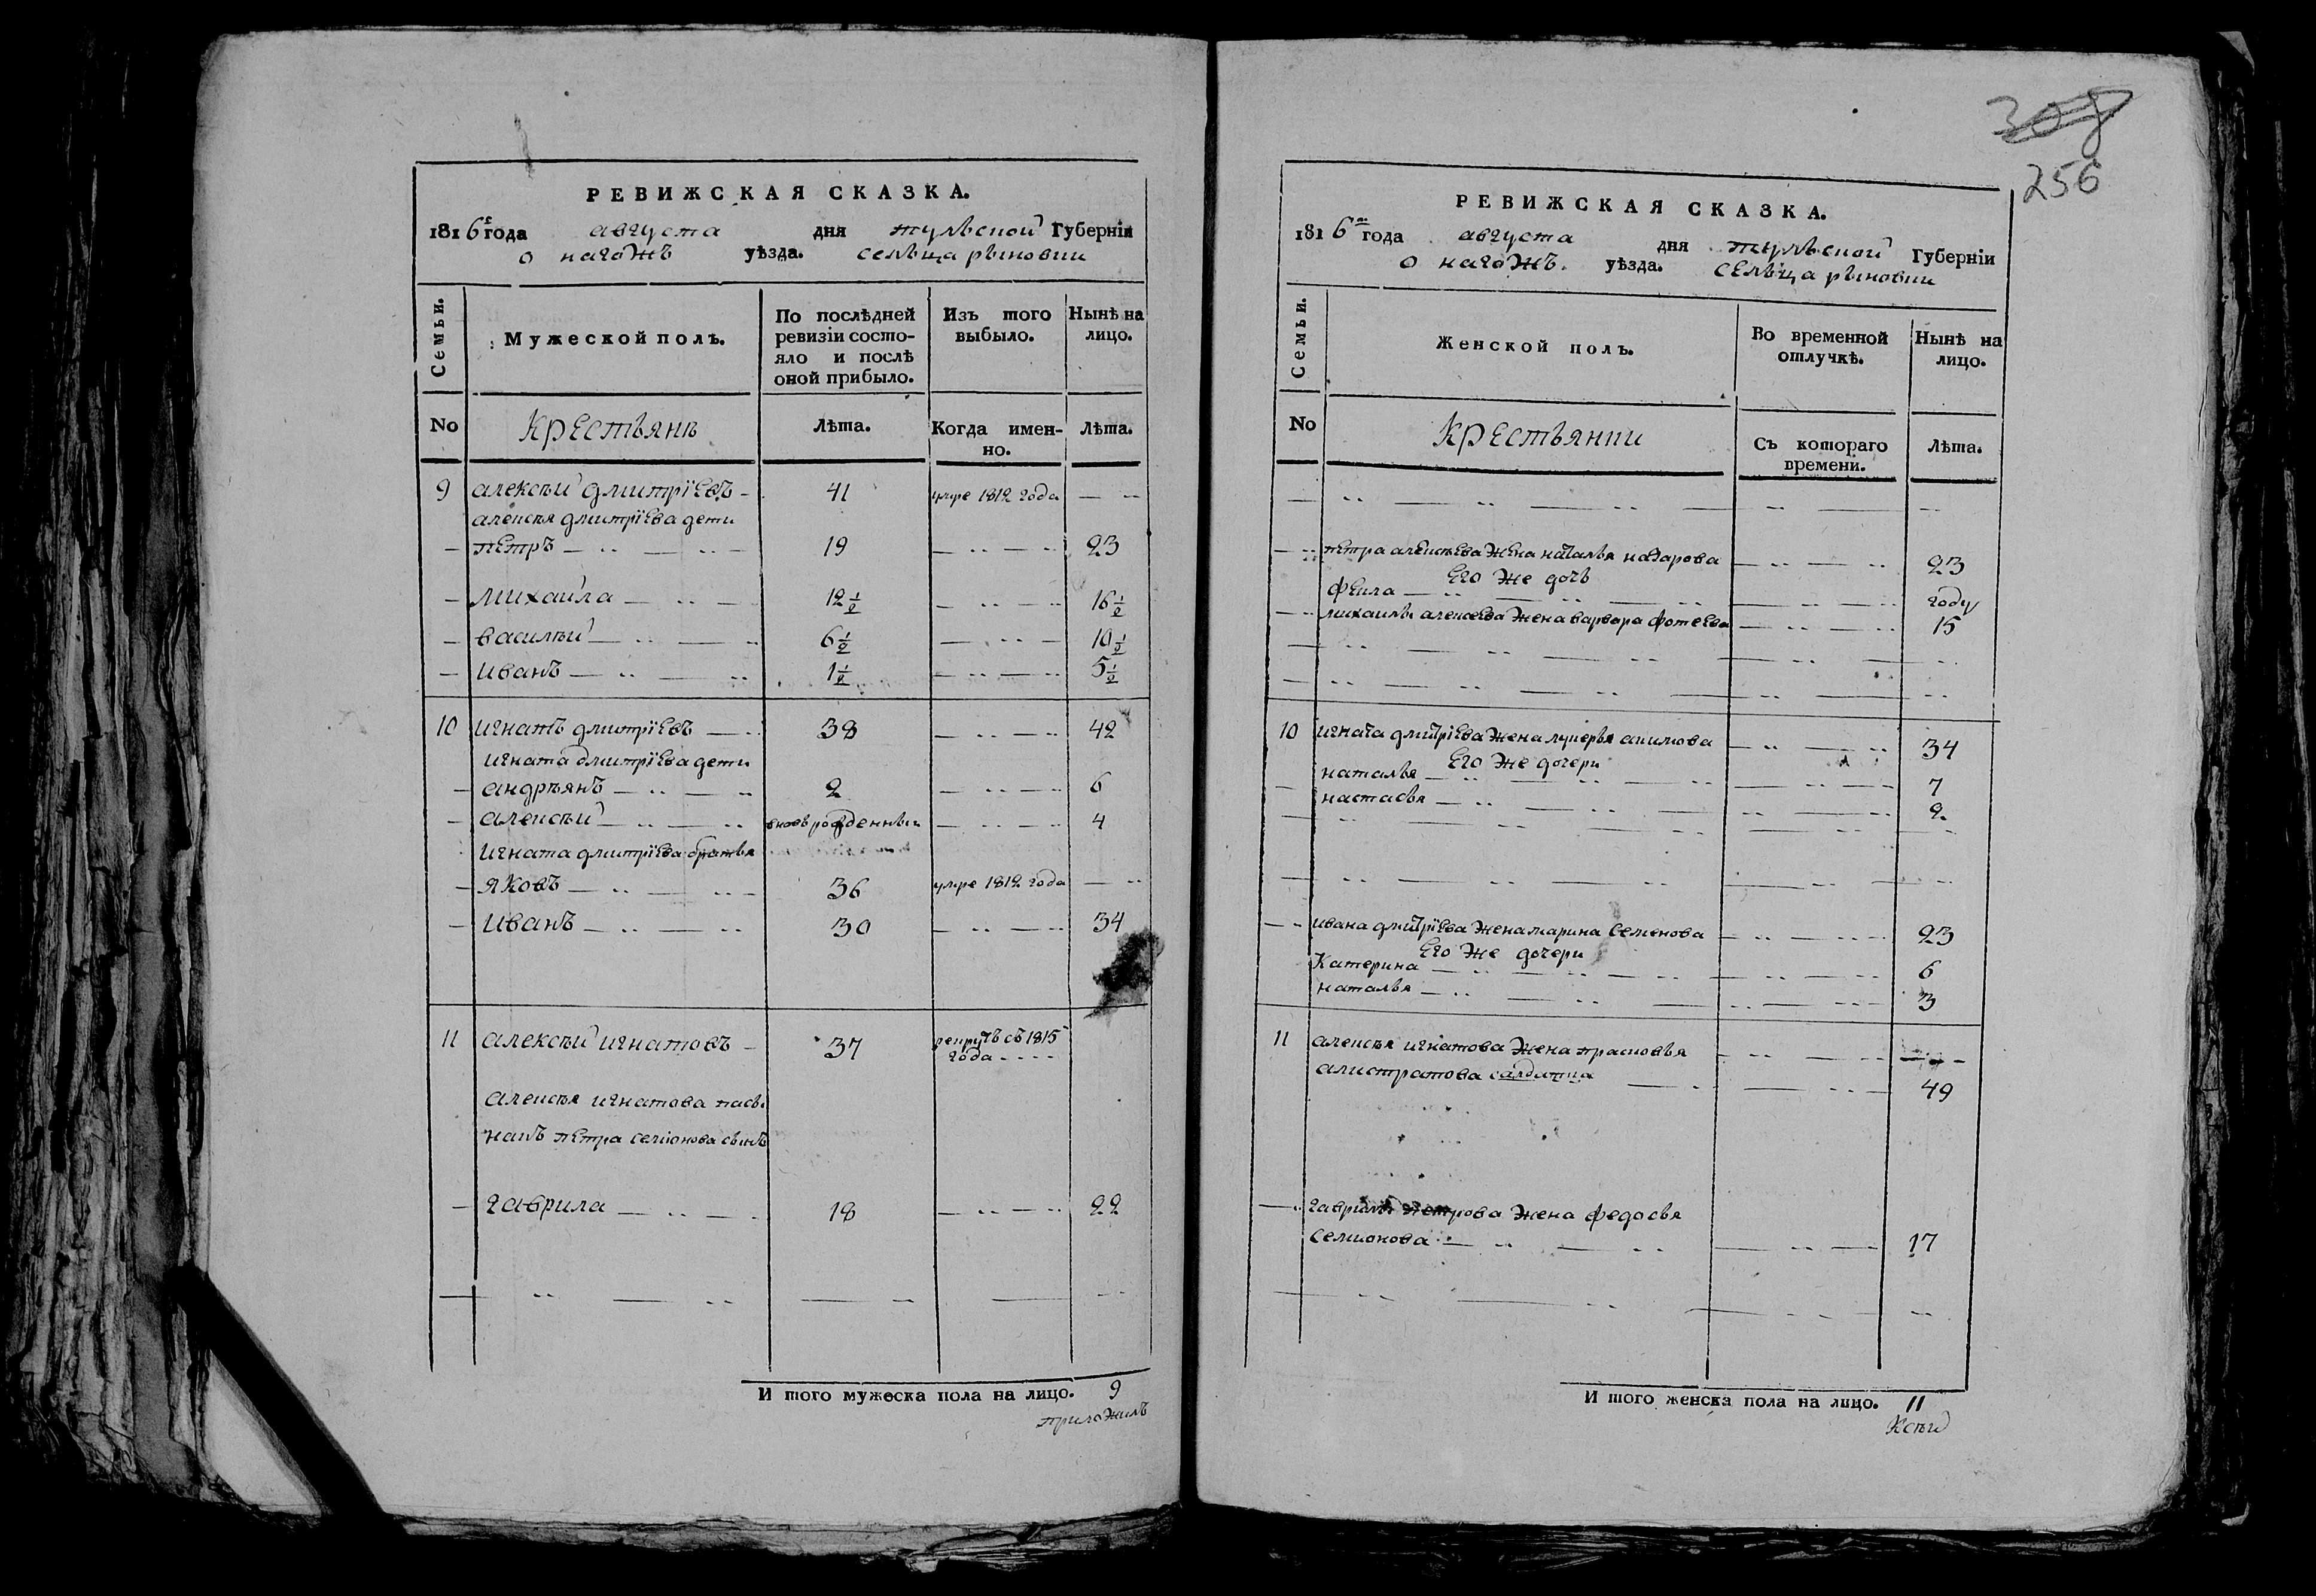 308
256
РЕВИЖСКАЯ СКАЗКА.
1816 года августа дня тульской Губерніи
о нагожъ уѣзда. селъца
Семьи.
Мужеской полъ.
По послѣдней ревизіи состо-
яло и послѣ
оной прибыло.
Изъ того
выбыло.
Нынѣ на
лицо.
No
Крестьянъ
Лѣта.
Когда имен-
но.
Лѣта.
9 алексѣй дмитріевъ 41 умре 1812 года
алексѣя дмитріева дети
петръ 19 23
михаила 12 1/2 16 1/2
василѣй 6 1/2 10 1/2
иванъ 1 1/2 5 1/2
10 игнатъ дмитріевъ 38 42
игната дмитріева дети
андрѣянъ 2 6
алексѣй вновь рожденный 4
игната дмитріева братья
яковъ 36 умре 1812 года
иванъ 30 34
11 алексѣй игнатовъ 37 рекрутъ съ 1815
года
алексѣя игнатова пасы
нокъ петра семионова сынъ
гаврила 18 22
И того мужеска пола на лицо. 9
приложилъ
РЕВИЖСКАЯ СКАЗКА.
1816 года августа дня тульской Губерніи
о нагожъ. уѣзда. селъца
Семьи.
Женской полъ.
Во временной
отлучкѣ.
Нынѣ на
лицо.
No
Крестьянки
Съ котораго
времени.
Лѣта.
петра алексѣева жена наталья назарова 23
Его же дочь
фекла году
михаилы алексеева жена варвара фотеева 15
10 игната дмитріева жена лукерья акимова 34
Его же дочери
наталья 7
настасья 2
ивана дмитріева жена марина семенова 23
Его же дочери
Катерина 6
наталья 3
11 алексѣя игнатова жена прасковья
алистратова салдатка 49
гаврилы петрова жена федосья
семионова 17
И того женска пола на лицо. 11
Ксѣй